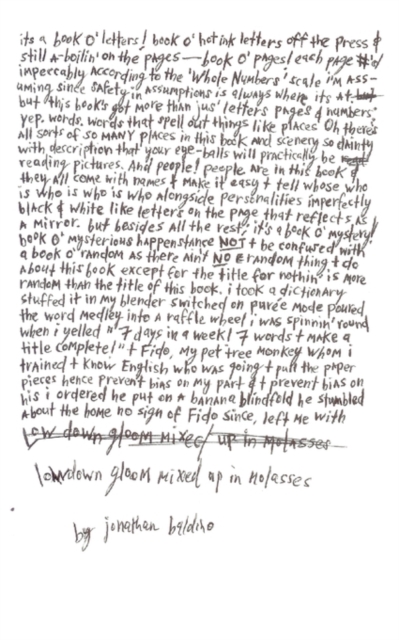 its a book o' letters! book o' hot ink letters off the press &
still a-boilin' on the pages — book o' pages! each page #'d
impeccably according to the 'Whole Numbers' scale i'm ass-
uming since safety in assumptions is always where its at.
but this book's got more than jus' letters pages & numbers,
yep. words. words that spell out things like places oh there's
all sorts of so MANY places in this book and scenery so dainty
with description that your eye-balls will practically be
reading pictures. And people! people are in this book &
they all come with names t make it easy t tell whose who
is who is who is who alongside personalities imperfectly
black & white like letters on the page that reflects as
a mirror. but besides all the rest, it's a book o' mystery!
book o' mysterious happenstance NOT t be confused with
a book o' random as there ain't NO random thing t do
about this book except for the title for nothin' is more
random than the title of this book. i took a dictionary
stuffed it in my blender switched on purée mode poured
the word medley into a raffle wheel i was spinnin' round
when i yelled "7 days in a week! 7 words t make a
title complete!" t Fido, my pet tree monkey whom i
trained t know English who was going t pull the paper
pieces hence prevent bias on my part & t prevent bias on
his i ordered he put on a banana blindfold he stumbled
about the home no sign of Fido since, left me with
low down gloom mixed up in molasses
lowdown gloom mixed up in molasses
by jonathan beldino